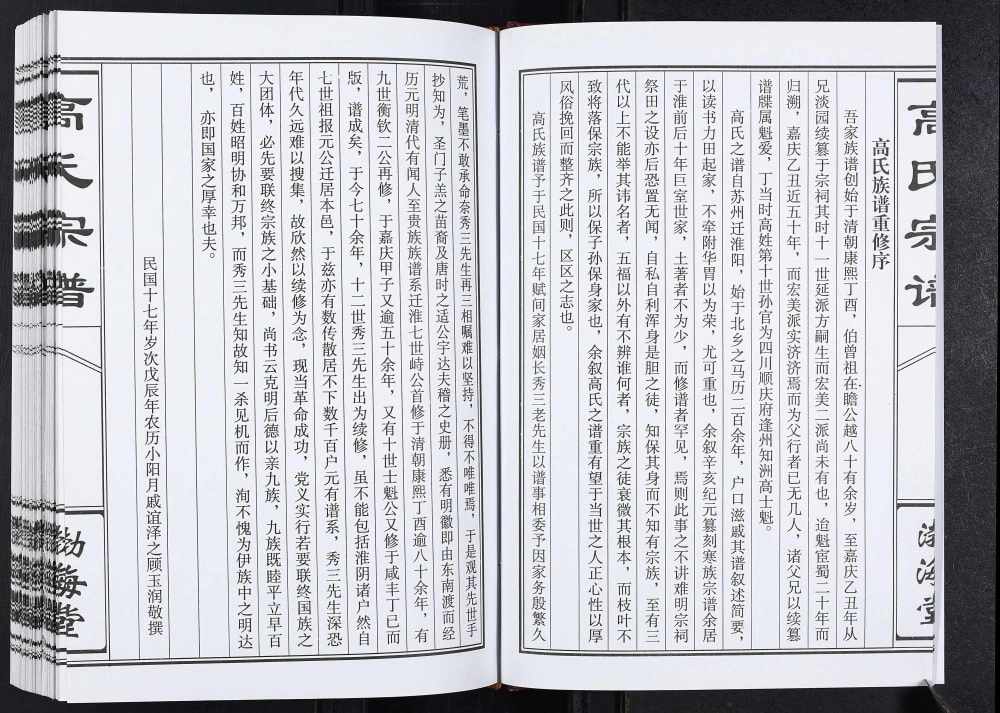 高氏宗谱
渤海堂
高氏族谱重修序
吾家族谱创始于清朝康熙丁酉，伯曾祖在瞻公越八十有余岁，至嘉庆乙丑年从
兄淡园续纂于宗祠其时十一世延派方嗣生而宏美二派尚未有也，迨魁宦蜀二十年而
归溯，嘉庆乙丑近五十年，而宏美派实济济焉而为父行者已无几人，诸父兄以续纂
谱牒属魁爱，丁当时高姓第十世孙官为四川顺庆府逢州知洲高士魁。
高氏之谱自苏州迁淮阳，始于北乡之马历二百余年，户口滋戚其谱叙述简要，
以读书力田起家，不牵附华胄以为荣，尤可重也，余叙辛亥纪元纂刻寒族宗谱余居
于淮前后十年巨室世家，土著者不为少，而修谱者罕见，焉则此事之不讲难明宗祠
祭田之设亦后恐置无闻，自私自利浑身是胆之徒，知保其身而不知有宗族，至有三
代以上不能举其讳名者，五福以外有不辨谁何者，宗族之徒衰微其根本，而枝叶不
致将落保宗族，所以保子孙保身家也，余叙高氏之谱重有望于当世之人正心性以厚
风俗挽回而整齐之此则，区区之志也。
高氏族谱予于民国十七年赋间家居姻长秀三老先生以谱事相委予因家务殷繁久
荒，笔墨不敢承命奈秀三先生再三相嘱难以坚持，不得不唯唯焉，于是观其先世手
抄知为，圣门子羔之苗裔及唐时之适公宇达夫稽之史册，悉有明徽即由东南渡而经
历元明清代有闻人至贵族族谱系迁淮七世峙公首修于清朝康熙丁酉逾八十余年，有
九世衡钦二公再修，于嘉庆甲子又逾五十余年，又有十世士魁公又修于咸丰丁已而
版，谱成矣，于今七十余年，十二世秀三先生出为续修，虽不能包括淮阴诸户然自
七世祖报元公迁居本邑，于兹亦有数传散居不下数千百户元有谱系，秀三先生深恐
年代久远难以搜集，故欣然以续修为念，现当革命成功，党义实行若要联终国族之
大团体，必先要联终宗族之小基础，尚书云克明后德以亲九族，九族既睦平立早百
姓，百姓昭明协和万邦，而秀三先生知故知一杀见机而作，洵不愧为伊族中之明达
也，亦即国家之厚幸也夫。
民国十七年岁次戊辰年农历小阳月戚谊泽之顾玉润敬撰
高氏宗谱
渤海堂